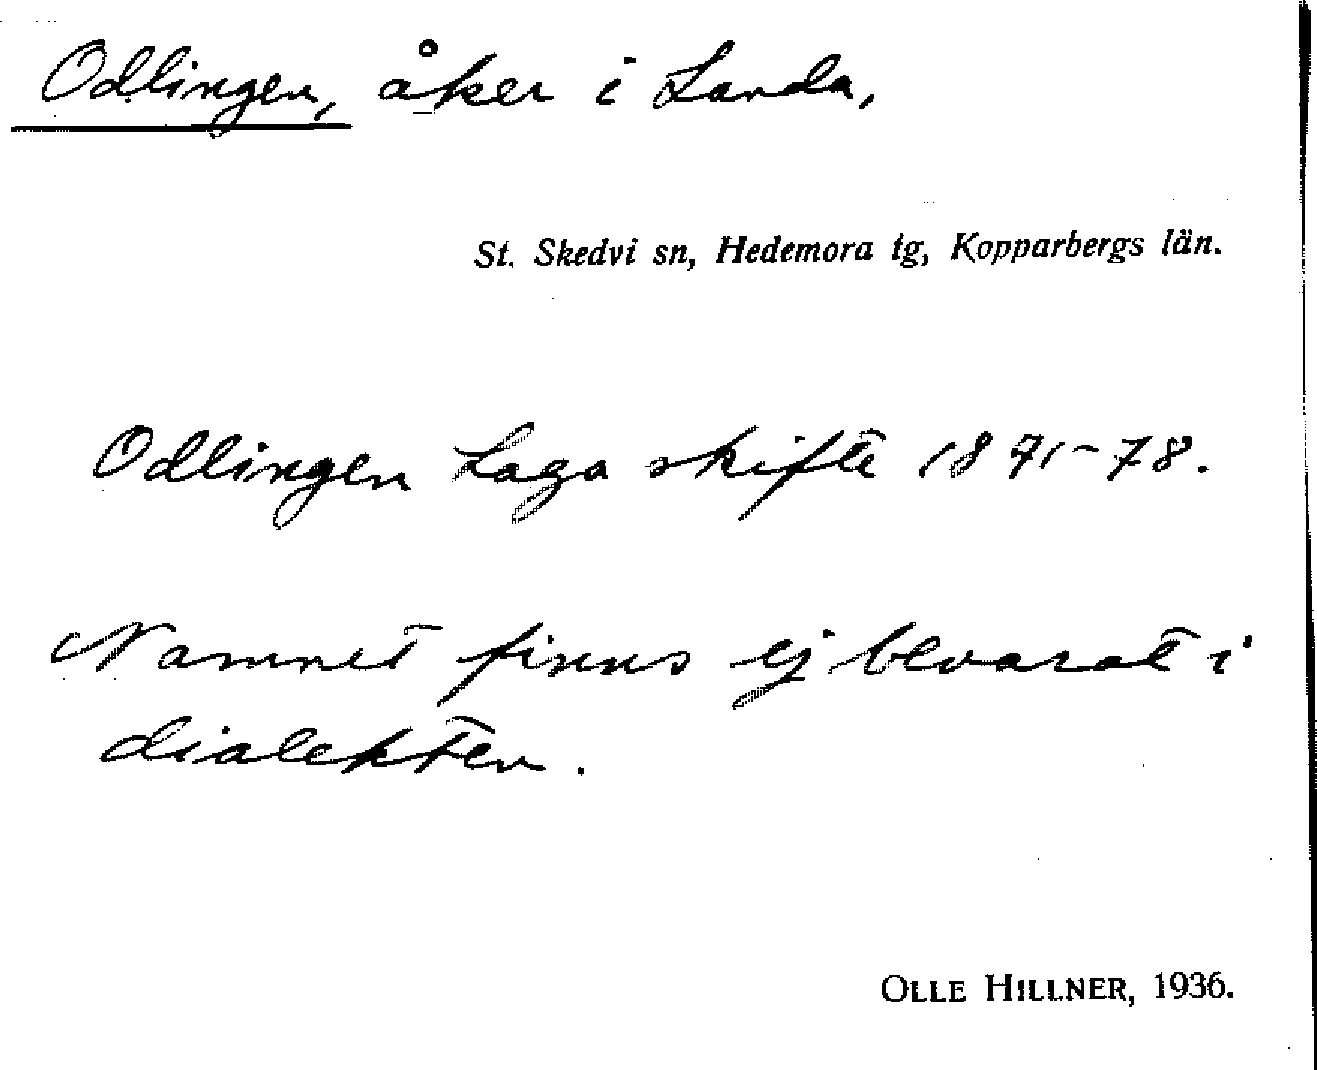 Odlingen, åker i Landa,
St. Skedvi sn, Hedemora tg, Kopparbergs län.
Odlingen Laga skifte 1871-78.
Namnet finns ej bevarat i
dialekten.
OLLE HILLNER, 1936.